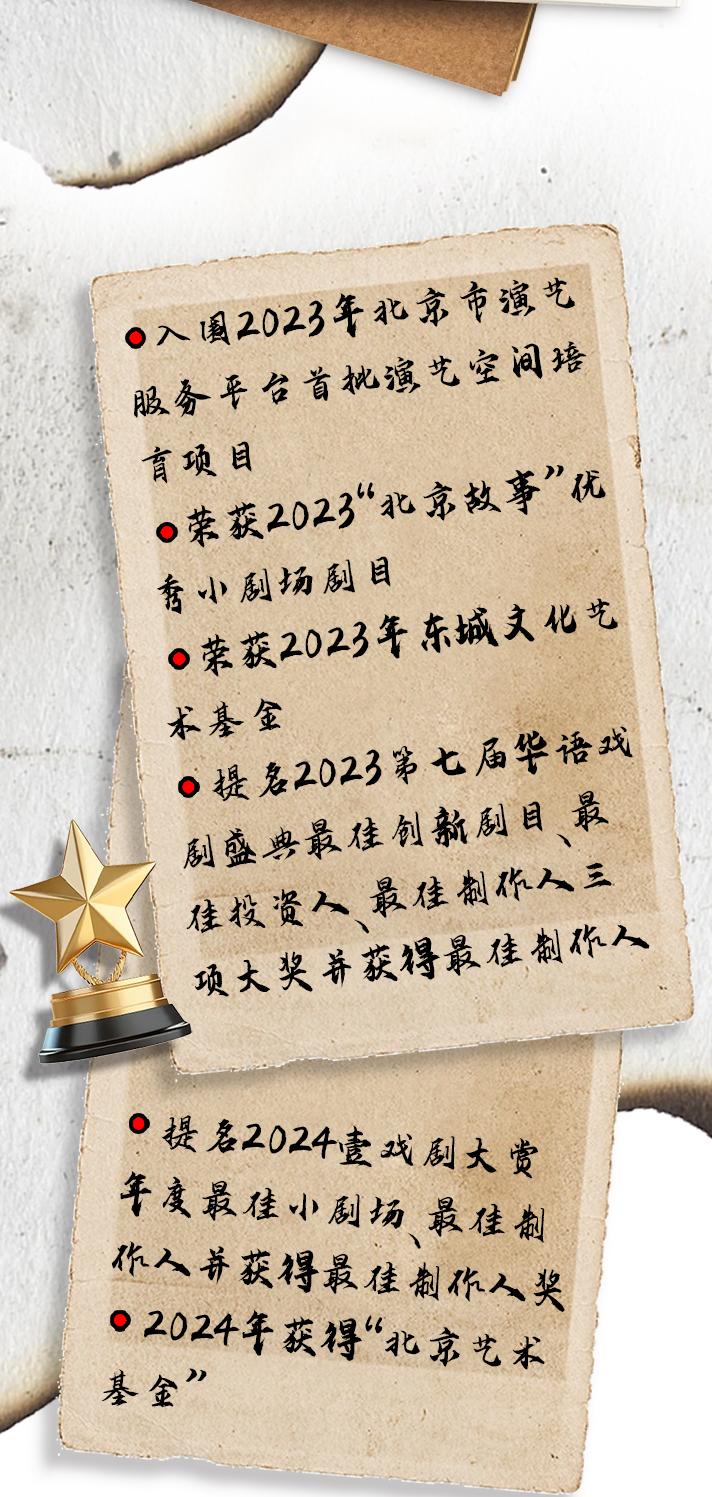 入围2023年北京市演艺
服务平台首批演艺空间培
育项目
荣获2023“北京故事”优
秀小剧场剧目
荣获2023年东城文化艺
术基金
提名2023第七届华语戏
剧盛典最佳创新剧目、最
佳投资人、最佳制作人三
项大奖并获得最佳制作人
提名2024壹戏剧大赏
年度最佳小剧场、最佳制
作人并获得最佳制作人奖
2024年获得“北京艺术
基金”